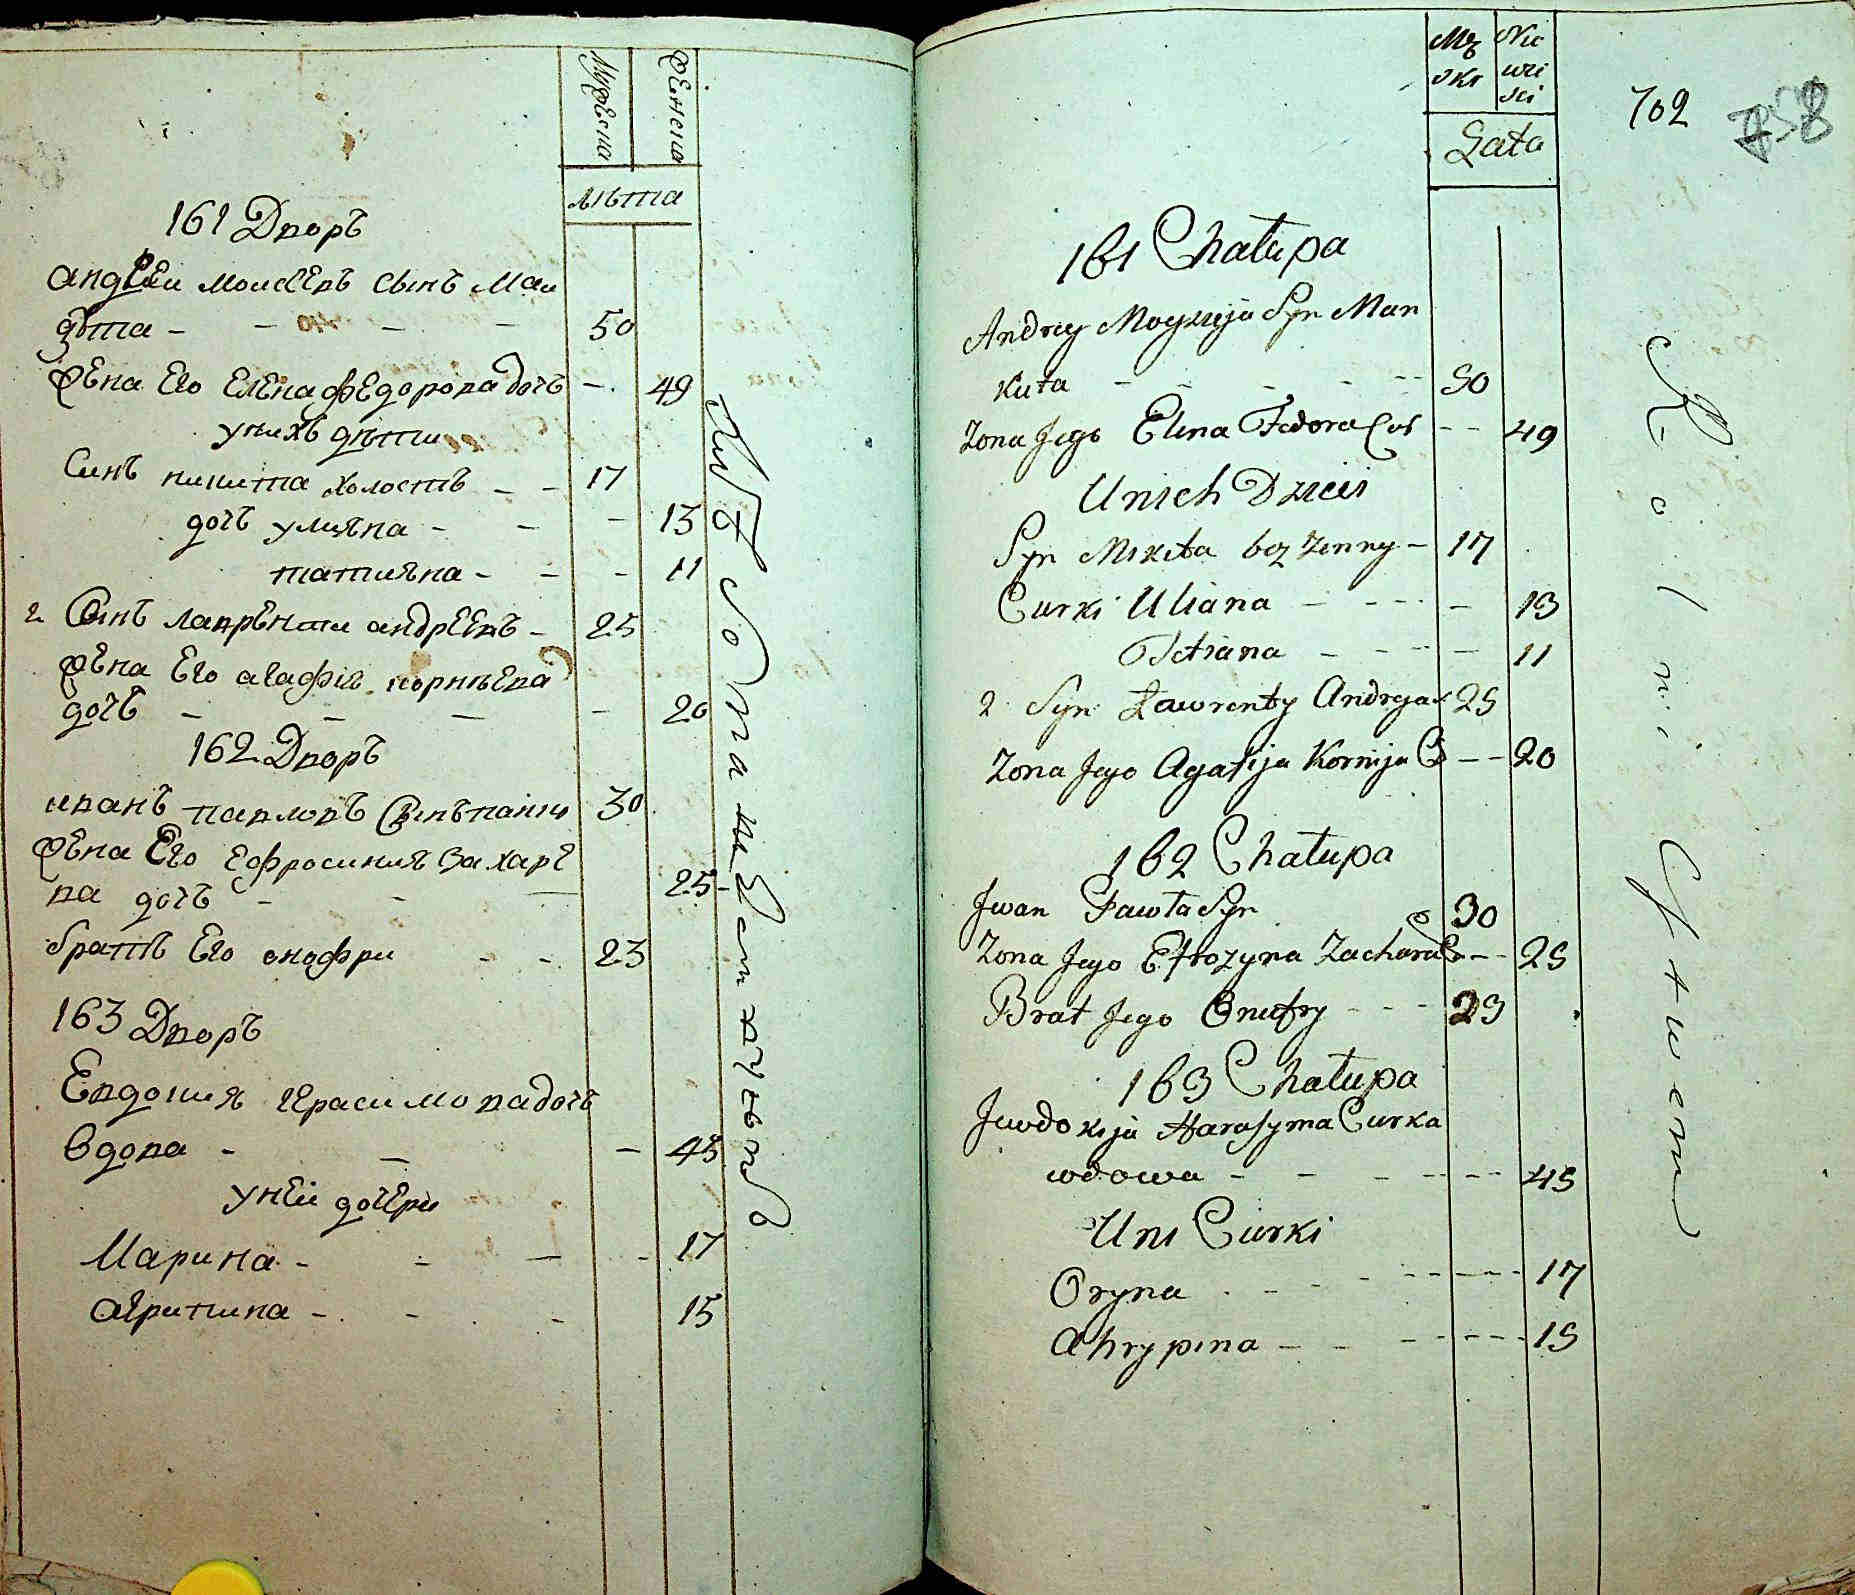 мужеска
женска
лѣта
161 Дворъ
андрей моисеевъ сынъ Ман
дзюта - - - - 50
жена Его Елена федорова дочь - 49
у нихъ дѣти
Синъ никита холостъ - - 17
дочъ улияна - - - 13
татияна - - - 11
2 Синъ лаврѣнти андреевъ - 25
жена Его агафія корнѣева
дочъ - - - - 20
162 Дворъ
иванъ павловъ Синъ 30
жена Его Ефросиния Захаре
ва дочъ - - - 25
братъ Его онофри - - 23
163 Дворъ
Евдокия Герасимова дочъ
вдова - - - 45
у неи дочери
Марина - - - - 17
агрипина - - - 15
Mę
ski
Nie
wie
sci
Lata
702
758
161 Chałupa
Andrey Moyzieja Syn Man
kuta - - - - - 50
Zona Jego Elena Fedora Cor - - 49
Unich Dzieci
Syn Mikita bez zenny - 17
Curki Uliana - - - - 13
Tetiana - - - - 11
2 Syn Ławrenty Andreja 25
Zona Jego Agafija Kornija C - - 20
162 Chałupa
Jwan Pawła Syn 30
Zona Jego Efrozyna Zachara C - - 25
Brat Jego Onufry - - - 23
163 Chałupa
Jewdokija Harasyma Curka
wdowa - - - - - - 45
Uni Curki
Oryna - - - - - - 17
Ahrypina - - - - - - 15